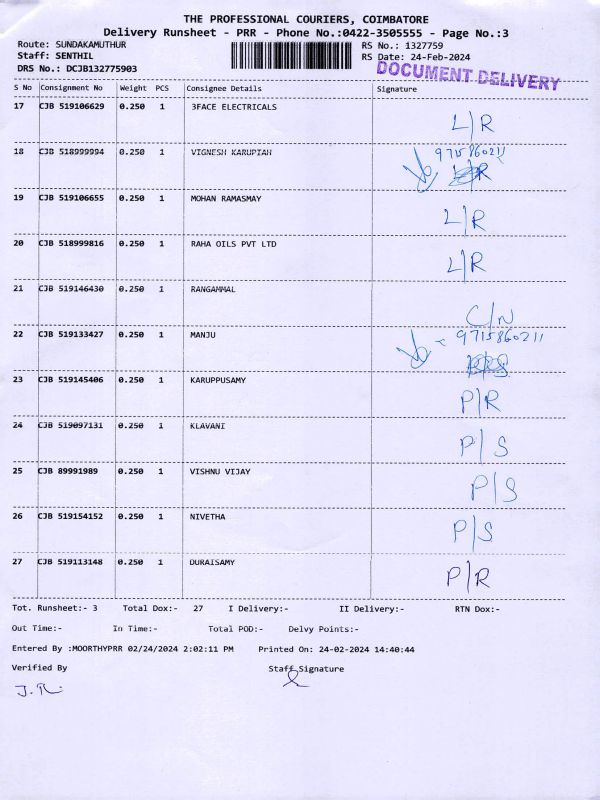 THE PROFESSIONAL COURIERS, COIMBATORE
Delivery Runsheet - PRR - Phone No.:0422-3505555 - Page No.:3
Route: SUNDAKAMUTHUR RS No.: 1327759
Staff: SENTHIL RS Date: 24-Feb-2024
DRS No.: DCJB132775903 DOCUMENT DELIVERY
S No Consignment No Weight PCS Consignee Details Signature
17 CJB 519106629 0.250 1 3FACE ELECTRICALS L/R
18 CJB 518999994 0.250 1 VIGNESH KARUPIAH 9715860211
19 CJB 519106655 0.250 1 MOHAN RAMASMAY L/R
20 CJB 518999816 0.250 1 RAHA OILS PVT LTD L/R
21 CJB 519146430 0.250 1 RANGAMMAL C/N
22 CJB 519133427 0.250 1 MANJU 9715860211
23 CJB 519145406 0.250 1 KARUPPUSAMY P/R
24 CJB 519097131 0.250 1 KLAVANI P/S
25 CJB 89991989 0.250 1 VISHNU VIJAY P/S
26 CJB 519154152 0.250 1 NIVETHA P/S
27 CJB 519113148 0.250 1 DURAISAMY P/R
Tot. Runsheet:- 3 Total Dox:- 27 I Delivery:- II Delivery:- RTN Dox:-
Out Time:- In Time:- Total POD:- Delvy Points:-
Entered By :MOORTHYPRR 02/24/2024 2:02:11 PM Printed On: 24-02-2024 14:40:44
Verified By Staff Signature